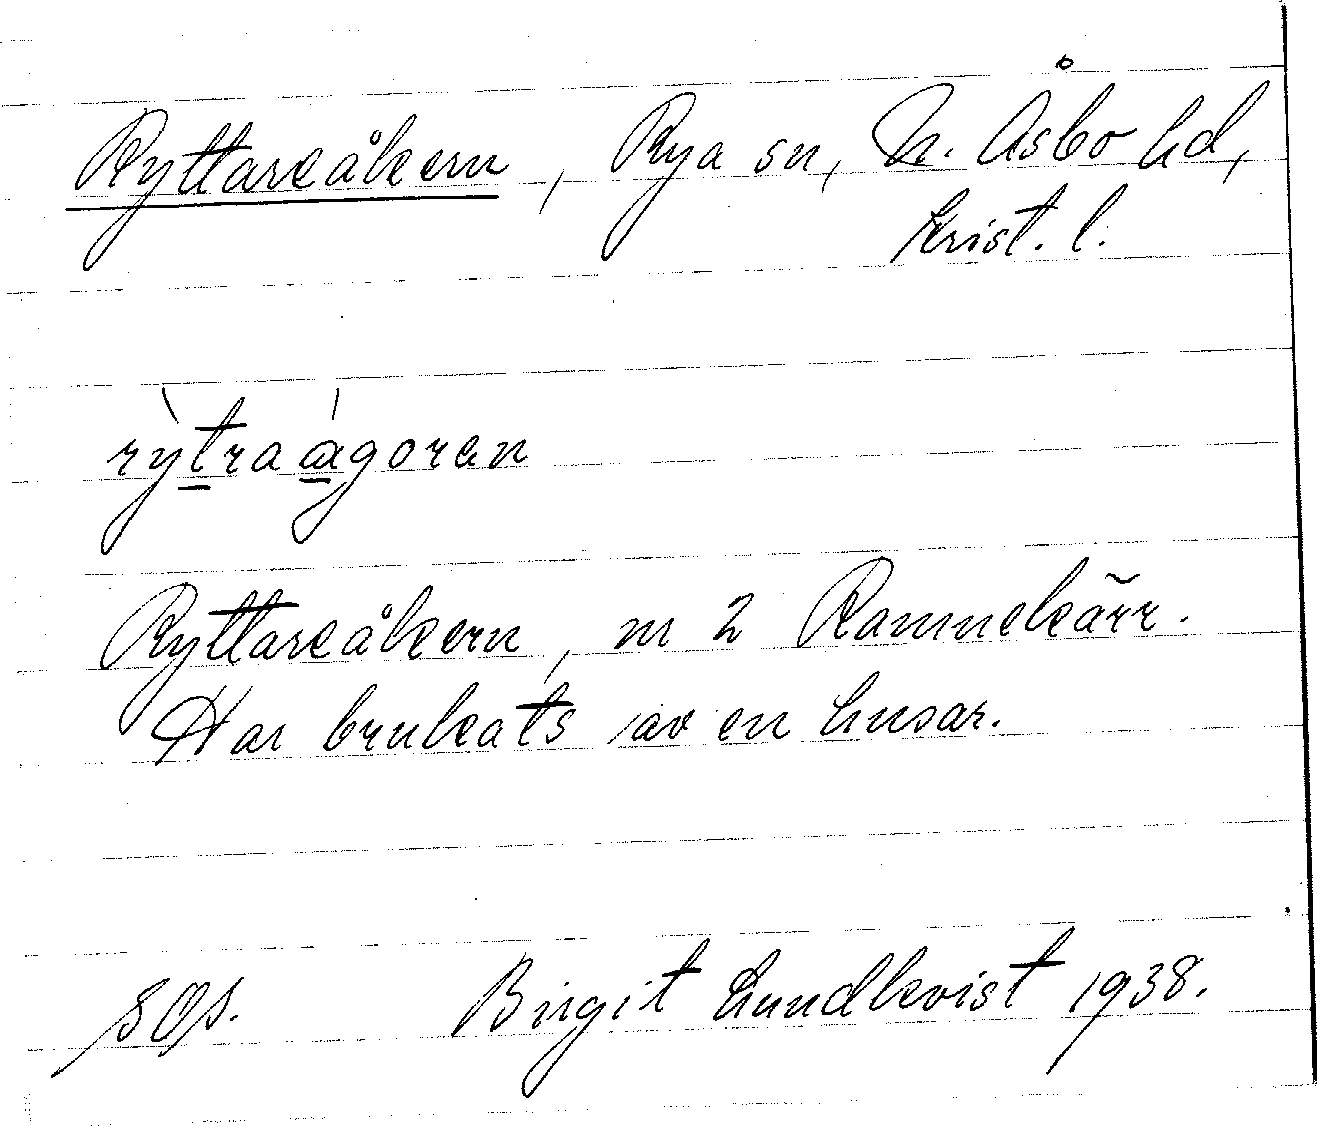 Ryttareåkern, Rya sn, N. Åsbo hd,
Krist. l.
rỳtraágoran
Ryttareåkern, nr 2 Ramnekärr.
Har brukats av en husar.
Birgit Lundkvist 1938.